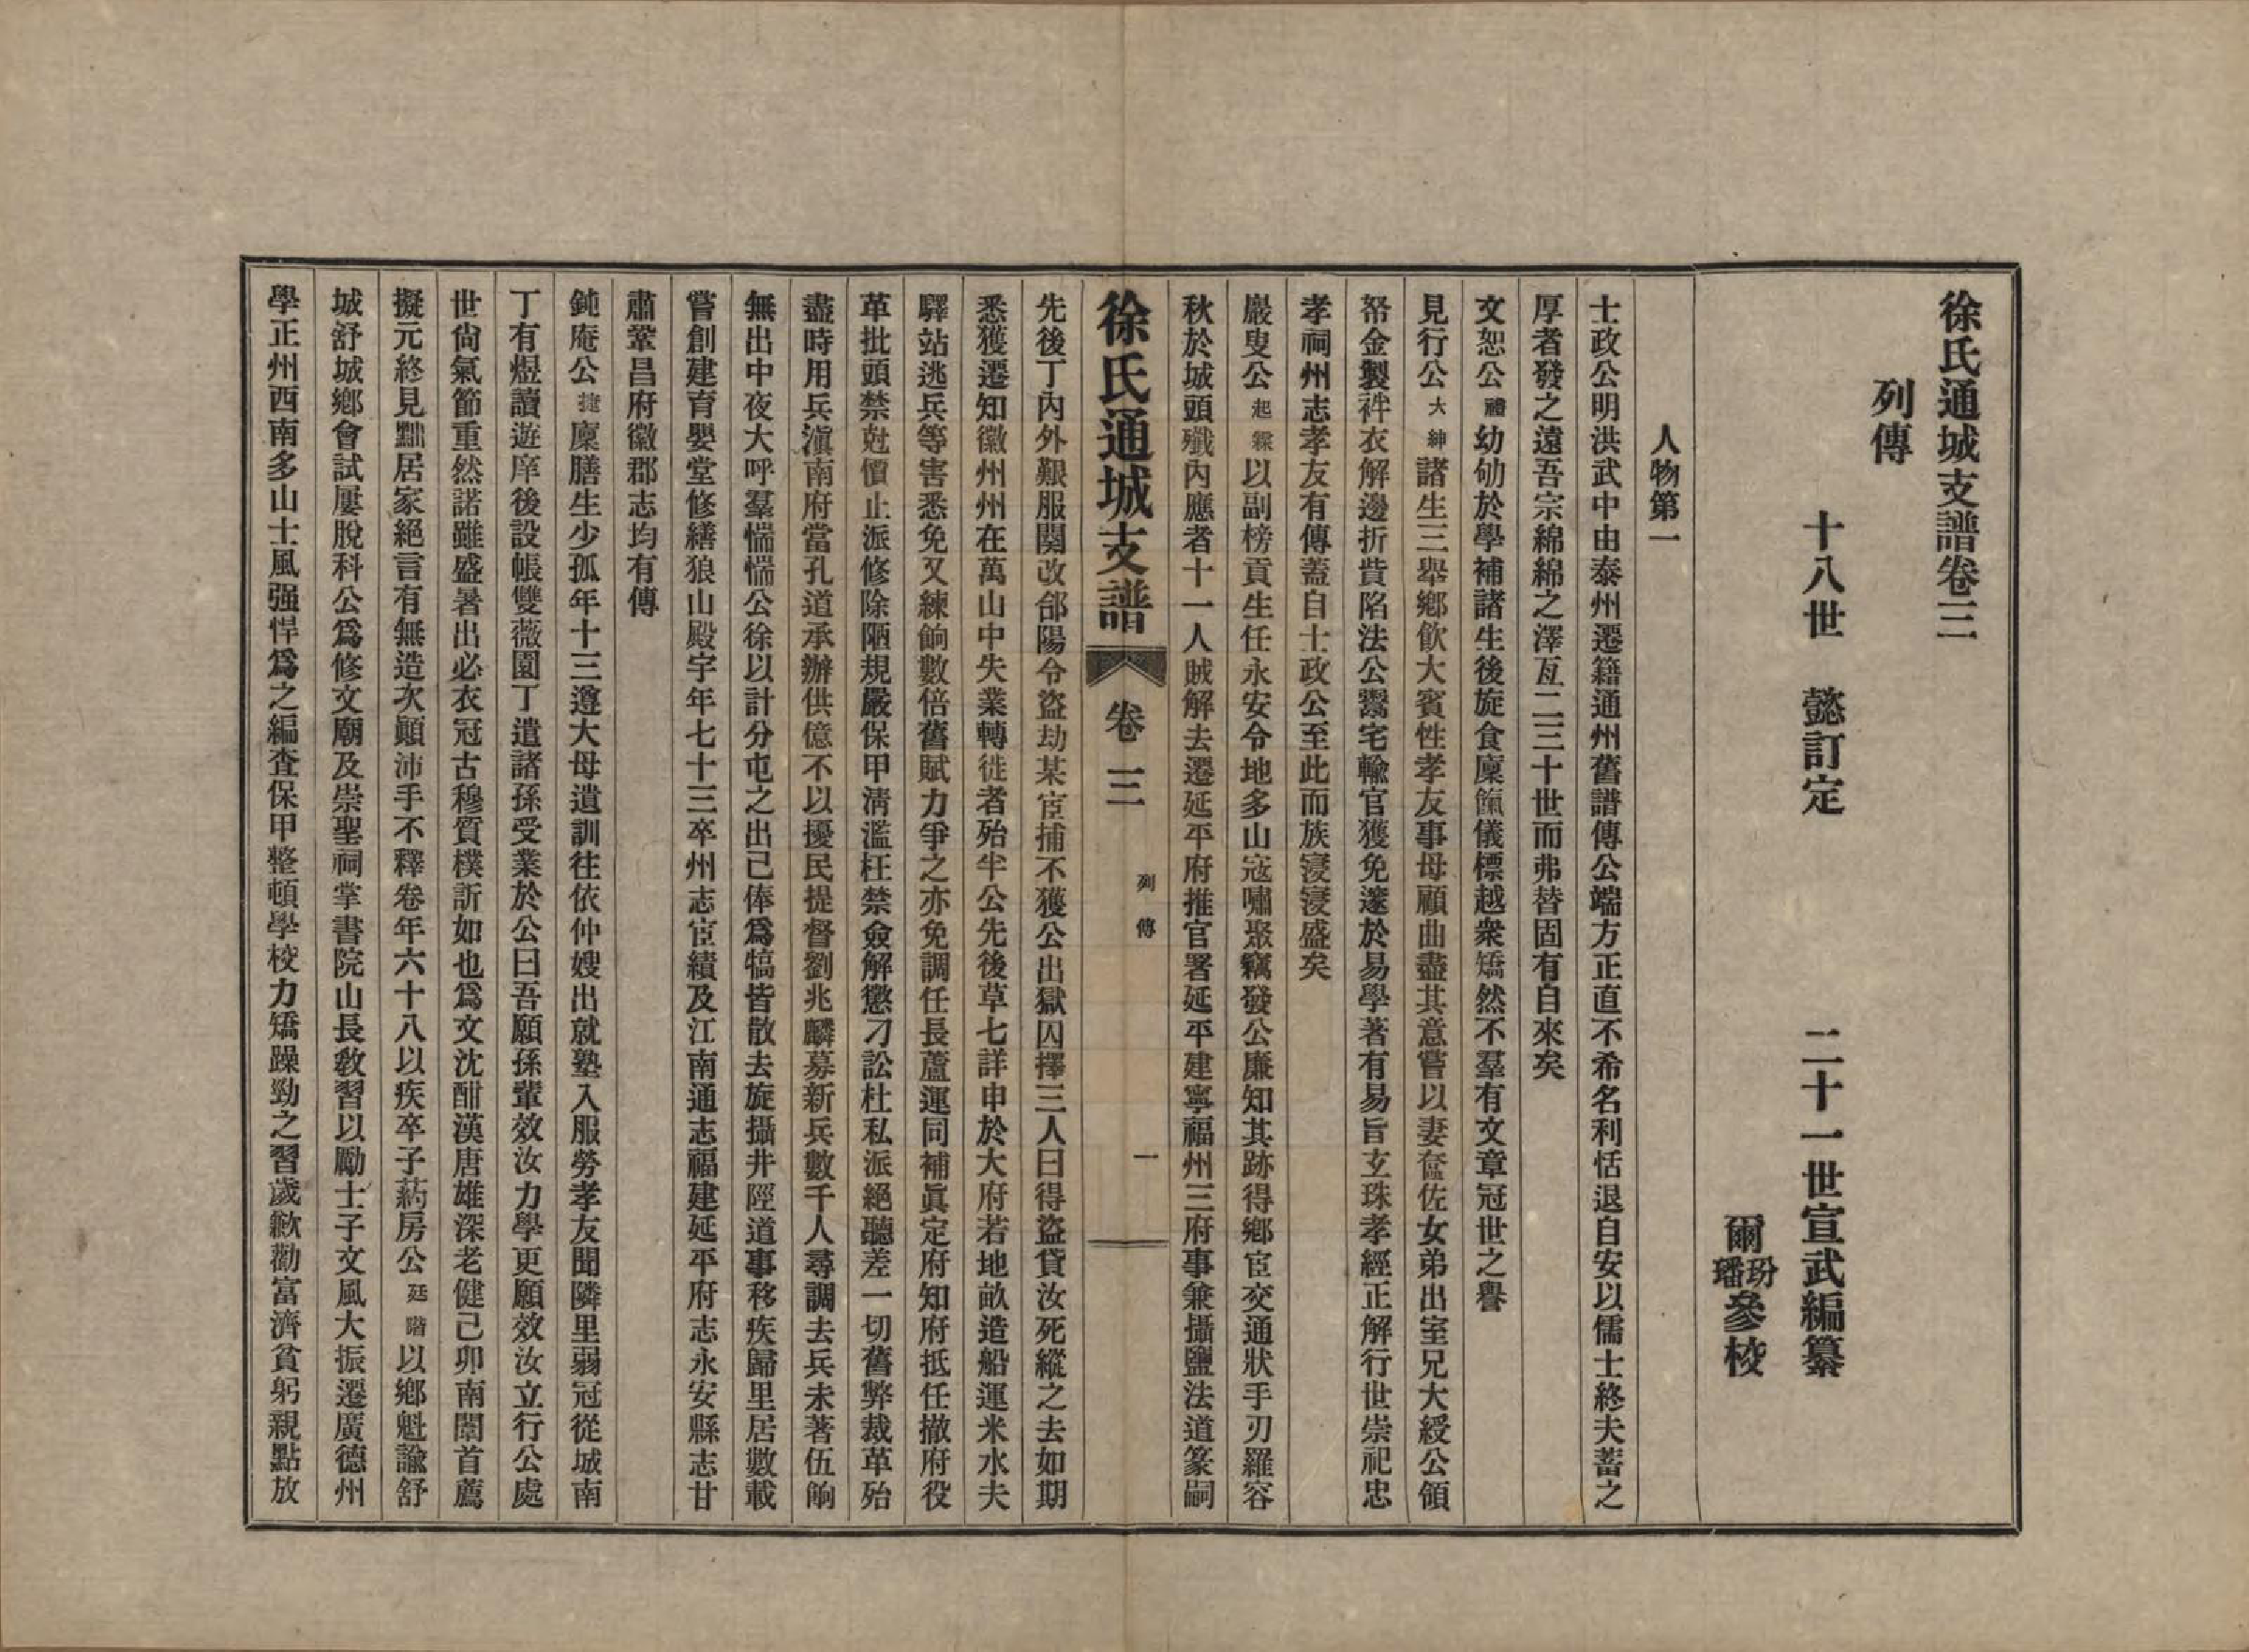 徐氏通城支譜卷三
列傳
十八世　懿訂定　二十一世宣武編纂
爾玢璠參校
人物第一
士政公明洪武中由泰州遷籍通州舊譜傳公端方正直不希名利恬退自安以儒士終夫蓄之
厚者發之遠吾宗綿綿之澤亙二三十世而弗替固有自來矣
文恕公禮幼劬於學補諸生後旋食廩餼儀標越衆矯然不羣有文章冠世之譽
見行公大紳諸生三舉鄉飲大賓性孝友事母顧曲盡其意嘗以妻奩佐女弟出室兄大綬公領
帑金製袢衣解邊折貲陷法公鬻宅輸官獲免邃於易學著有易旨玄珠孝經正解行世崇祀忠
孝祠州志孝友有傳蓋自士政公至此而族寖寖盛矣
巖叟公起霖以副榜貢生任永安令地多山寇嘯聚竊發公廉知其跡得鄉宦交通狀手刃羅容
秋於城頭殲內應者十一人賊解去遷延平府推官署延平建寧福州三府事兼攝鹽法道篆嗣
徐氏通城支譜　卷三　列傳　一
先後丁內外艱服闋改郃陽令盜劫某宦捕不獲公出獄囚擇三人曰得盜貸汝死縱之去如期
悉獲遷知徽州州在萬山中失業轉徙者殆半公先後草七詳申於大府若地畝造船運米水夫
驛站逃兵等害悉免又練餉數倍舊賦力爭之亦免調任長蘆運同補眞定府知府抵任撤府役
革批頭禁尅價止派修除陋規嚴保甲淸濫枉禁僉解懲刁訟杜私派絕聽差一切舊弊裁革殆
盡時用兵滇南府當孔道承辦供億不以擾民提督劉兆麟募新兵數千人尋調去兵未著伍餉
無出中夜大呼羣惴惴公徐以計分屯之出己俸爲犒皆散去旋攝井陘道事移疾歸里居數載
嘗創建育嬰堂修繕狼山殿宇年七十三卒州志宦績及江南通志福建延平府志永安縣志甘
肅鞏昌府徽郡志均有傳
鈍庵公捷廩膳生少孤年十三遵大母遺訓往依仲嫂出就塾入服勞孝友聞隣里弱冠從城南
丁有煜讀遊庠後設帳雙薇園丁遣諸孫受業於公曰吾願孫輩效汝力學更願效汝立行公處
世尙氣節重然諾雖盛暑出必衣冠古穆質樸訢如也爲文沈酣漢唐雄深老健己卯南闈首薦
擬元終見黜居家絕言有無造次顚沛手不釋卷年六十八以疾卒子葯房公廷階以鄉魁諭舒
城舒城鄉會試屢脫科公爲修文廟及崇聖祠掌書院山長敎習以勵士子文風大振遷廣德州
學正州西南多山士風强悍爲之編査保甲整頓學校力矯躁勁之習歲歉勸富濟貧躬親點放